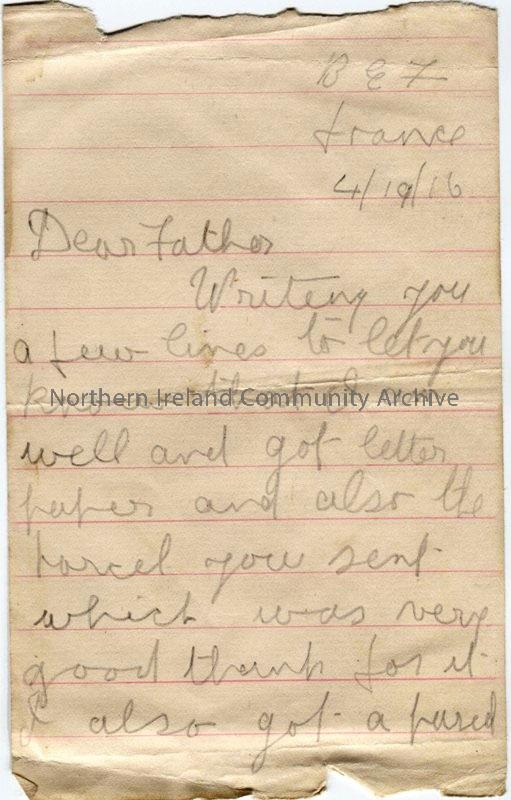 B E F
France
4/19/16
Dear Father
Writing you
a few lines to let you
know that I am
Northern Ireland Community Archive
well and got letter
paper and also the
parcel you sent
which was very
good thank for it
I also got a parcel